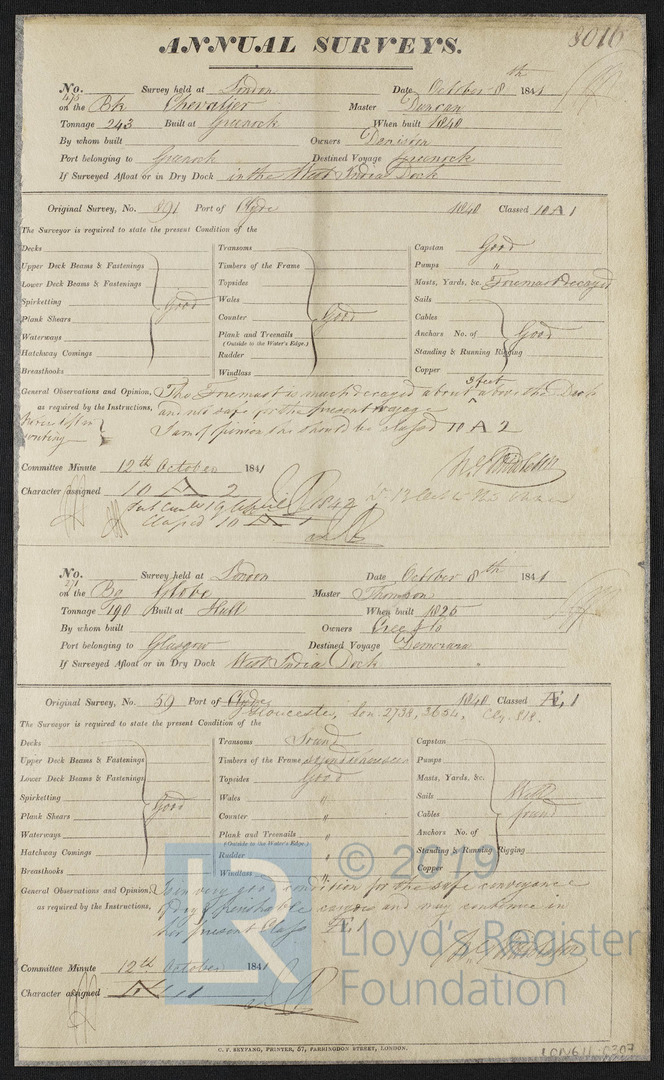 ANNUAL SURVEYS. 8016
No. 475 Survey held at London Date October 8th 1841
on the Bk Chevalier Master Duncan
Tonnage 243 Built at Greenock When built 1840
By whom built Owners
Port belonging to Greenock Destined Voyage Greenock
If Surveyed Afloat or in Dry Dock in the West India Dock
Original Survey, No. 891 Port of Clyde 1840 Classed 10 A 1
The Surveyor is required to state the present Condition of the
Decks Transoms Capstan Good
Upper Deck Beams & Fastenings Timbers of the Frame Pumps "
Lower Deck Beams & Fastenings Topsides Masts, Yards, &c. Foremast decayed
Spirketting Good Wales Sails
Plank Shears Counter Good Cables
Waterways Plank and Treenails Anchors No. of Good
(Outside to the Water's Edge.)
Hatchway Comings Rudder Standing & Running Rigging
Breasthooks Windlass Copper
General Observations and Opinion, The Foremast is much decayed about 3 feet above the Deck
as required by the Instructions, and not safe for the present voyage
I am of opinion she should be classed 10 A 2
Committee Minute 12th October 1841
Character assigned 10 A 2
1842
Classed 10 A 1
No. 271 Survey held at London Date October 8th 1841
on the Bg Globe Master Thomson
Tonnage 190 Built at Hull When built 1825
By whom built Owners
Port belonging to Glasgow Destined Voyage Demerara
If Surveyed Afloat or in Dry Dock West India Dock
Original Survey, No. 59 Port of Clyde 1840 Classed Æ, 1
Gloucester, Lon. 2738, 3654, Cly. 818.
The Surveyor is required to state the present Condition of the
Decks Transoms Sound Capstan
Upper Deck Beams & Fastenings Timbers of the Frame Pumps
Lower Deck Beams & Fastenings Topsides Good Masts, Yards, &c.
Spirketting Wales " Sails Well
Plank Shears Good Counter " Cables found
Waterways Plank and Treenails " Anchors No. of
(Outside to the Water's Edge.)
Hatchway Comings Rudder " Standing & Running Rigging
Breasthooks Windlass " Copper
General Observations and Opinion, Is in very good condition for the safe conveyance
as required by the Instructions, of dry & perishable cargoes and may continue in
her present Class Æ, 1
Committee Minute 12th October 1841
Character assigned Æ 1
C. F. SEYFANG, PRINTER, 57, FARRINGDON STREET, LONDON.
LR
© 2019
Lloyd's Register
Foundation